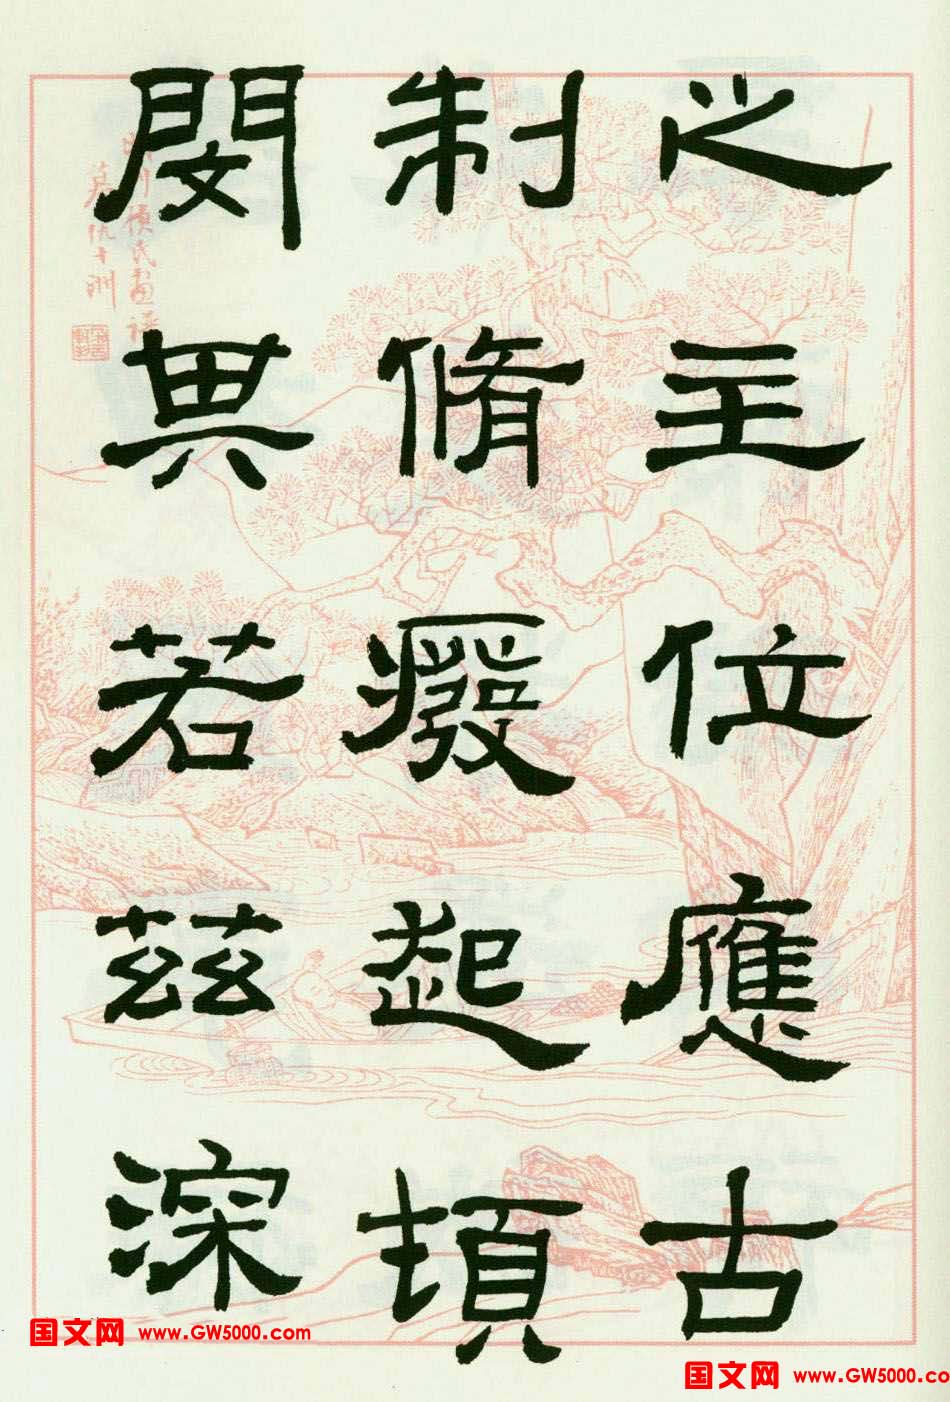 之主位應古
制脩癈起頓
閔其若茲深
国文网 www.GW5000.com
国文网 www.GW5000.co